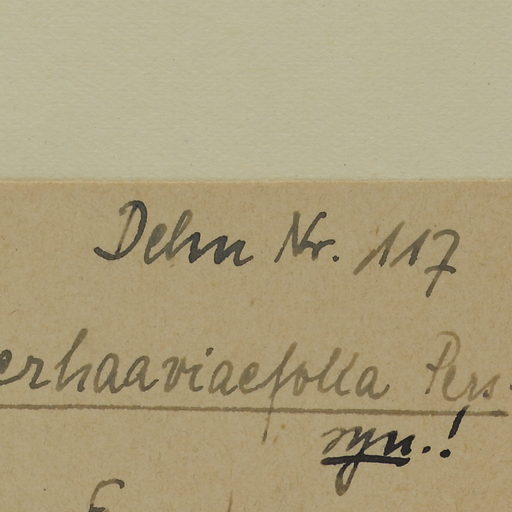 Dehn Nr. 117
erhaaviaefolia Pers.
syn.!